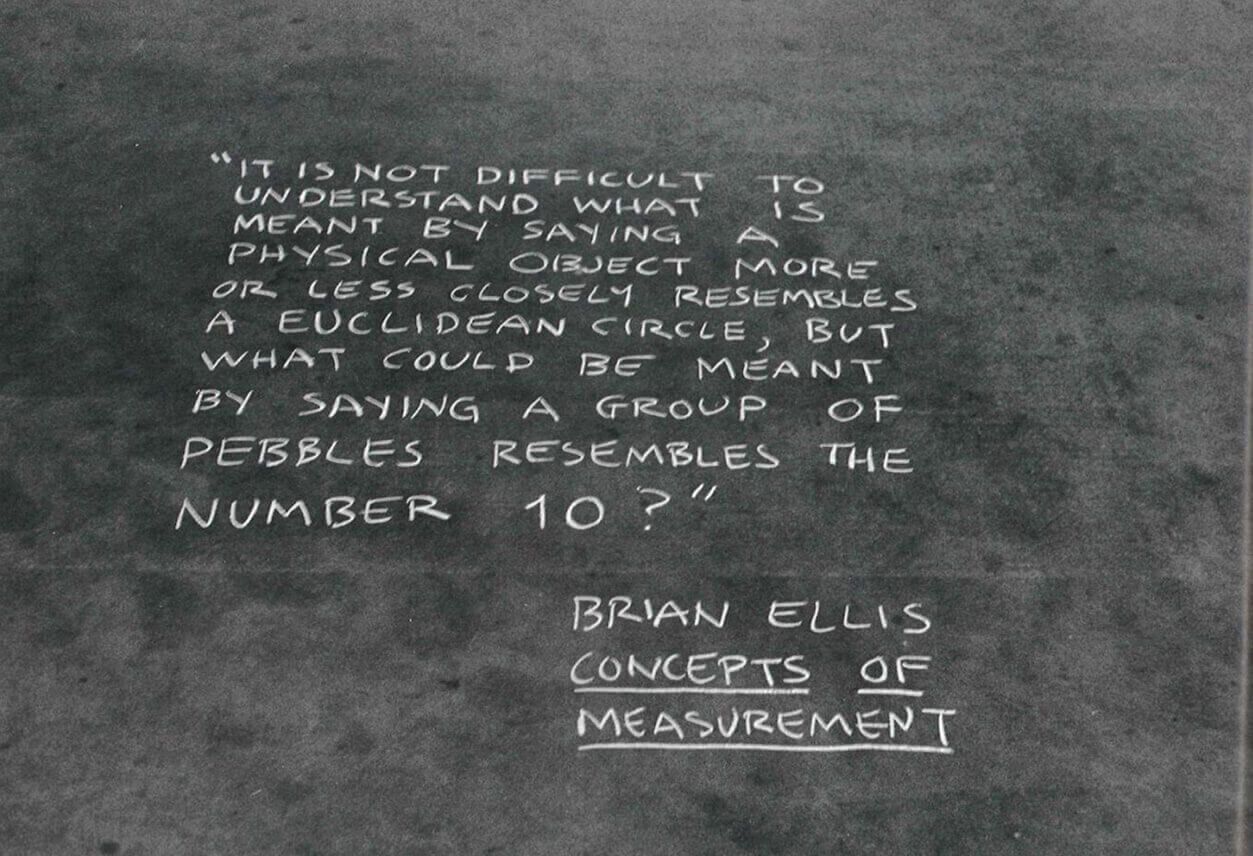 "IT IS NOT DIFFICULT TO
UNDERSTAND WHAT IS
MEANT BY SAYING A
PHYSICAL OBJECT MORE
OR LESS CLOSELY RESEMBLES
A EUCLIDEAN CIRCLE, BUT
WHAT COULD BE MEANT
BY SAYING A GROUP OF
PEBBLES RESEMBLES THE
NUMBER 10?"
BRIAN ELLIS
CONCEPTS OF
MEASUREMENT